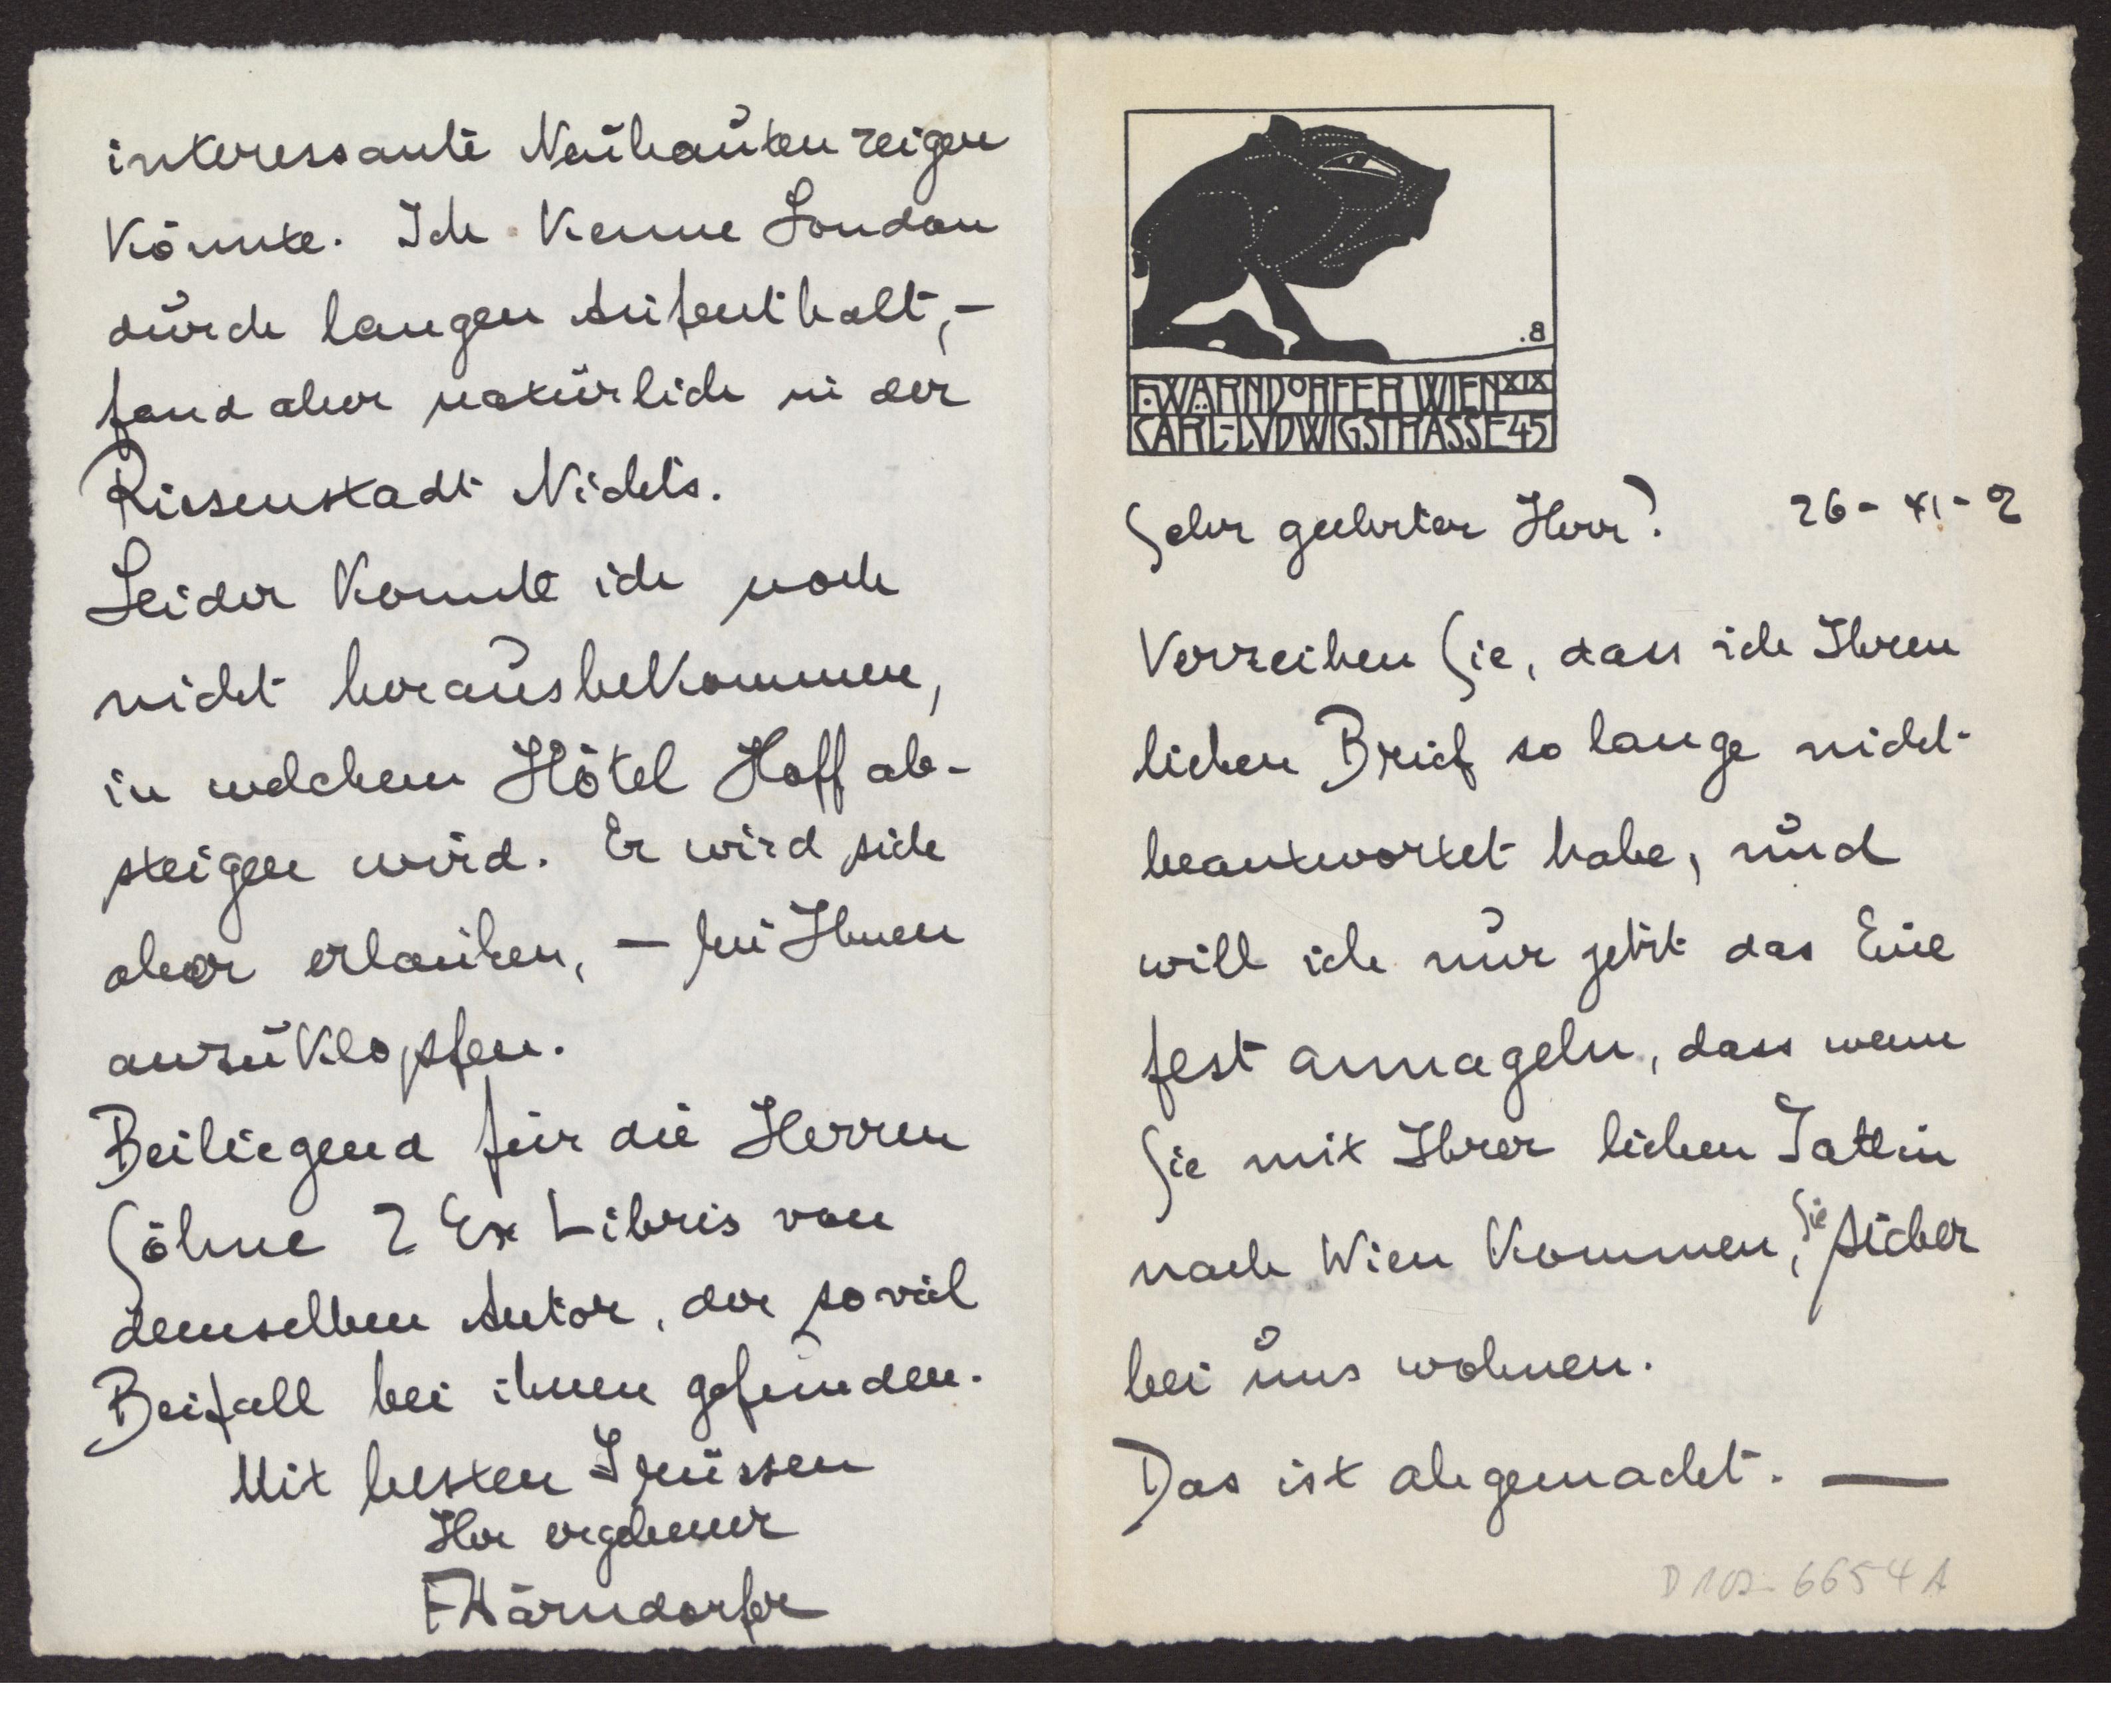 F. WÄRNDORFER WIEN XIX
CARL-LVDWIGSTRASSE 45
Sehr geehrter Herr! 26 - XI - 2
Verzeihen Sie, dass ich Ihren
lieben Brief so lange nicht
beantwortet habe, und
will ich nur jetzt das Eine
fest annageln, dass wenn
Sie mit Ihrer lieben Gattin
nach Wien kommen, Sie sicher
bei uns wohnen.
Das ist abgemacht. —
D 102-6654 A
interessante Neubauten zeigen
könnte. Ich kenne London
durch langen Aufenthalt, –
fand aber natürlich in der
Riesenstadt Nichts.
Leider konnte ich noch
nicht herausbekommen,
in welchem Hôtel Hoff ab-
steigen wird. Er wird sich
aber erlauben, — bei Ihnen
anzuklopfen.
Beiliegend für die Herren
Söhne 2 Ex Libris von
demselben Autor, der soviel
Beifall bei ihnen gefunden.
Mit besten Grüssen
Ihr ergebener
FWärndorfer